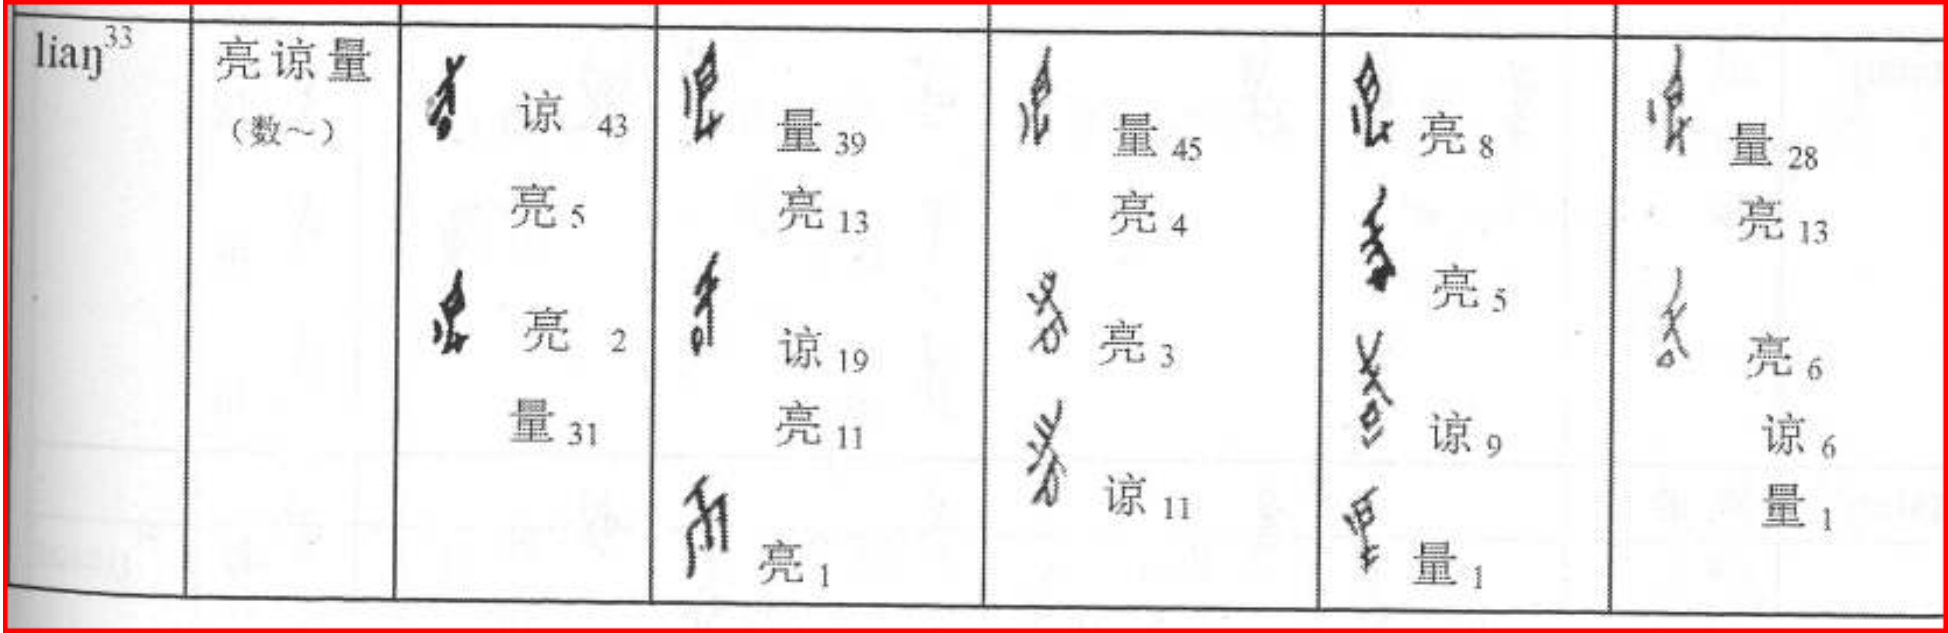 liaŋ³³
亮谅量
（数～）
谅 43
亮 5
亮 2
量 31
量 39
亮 13
谅 19
亮 11
亮 1
量 45
亮 4
亮 3
谅 11
亮 8
亮 5
谅 9
量 1
量 28
亮 13
亮 6
谅 6
量 1